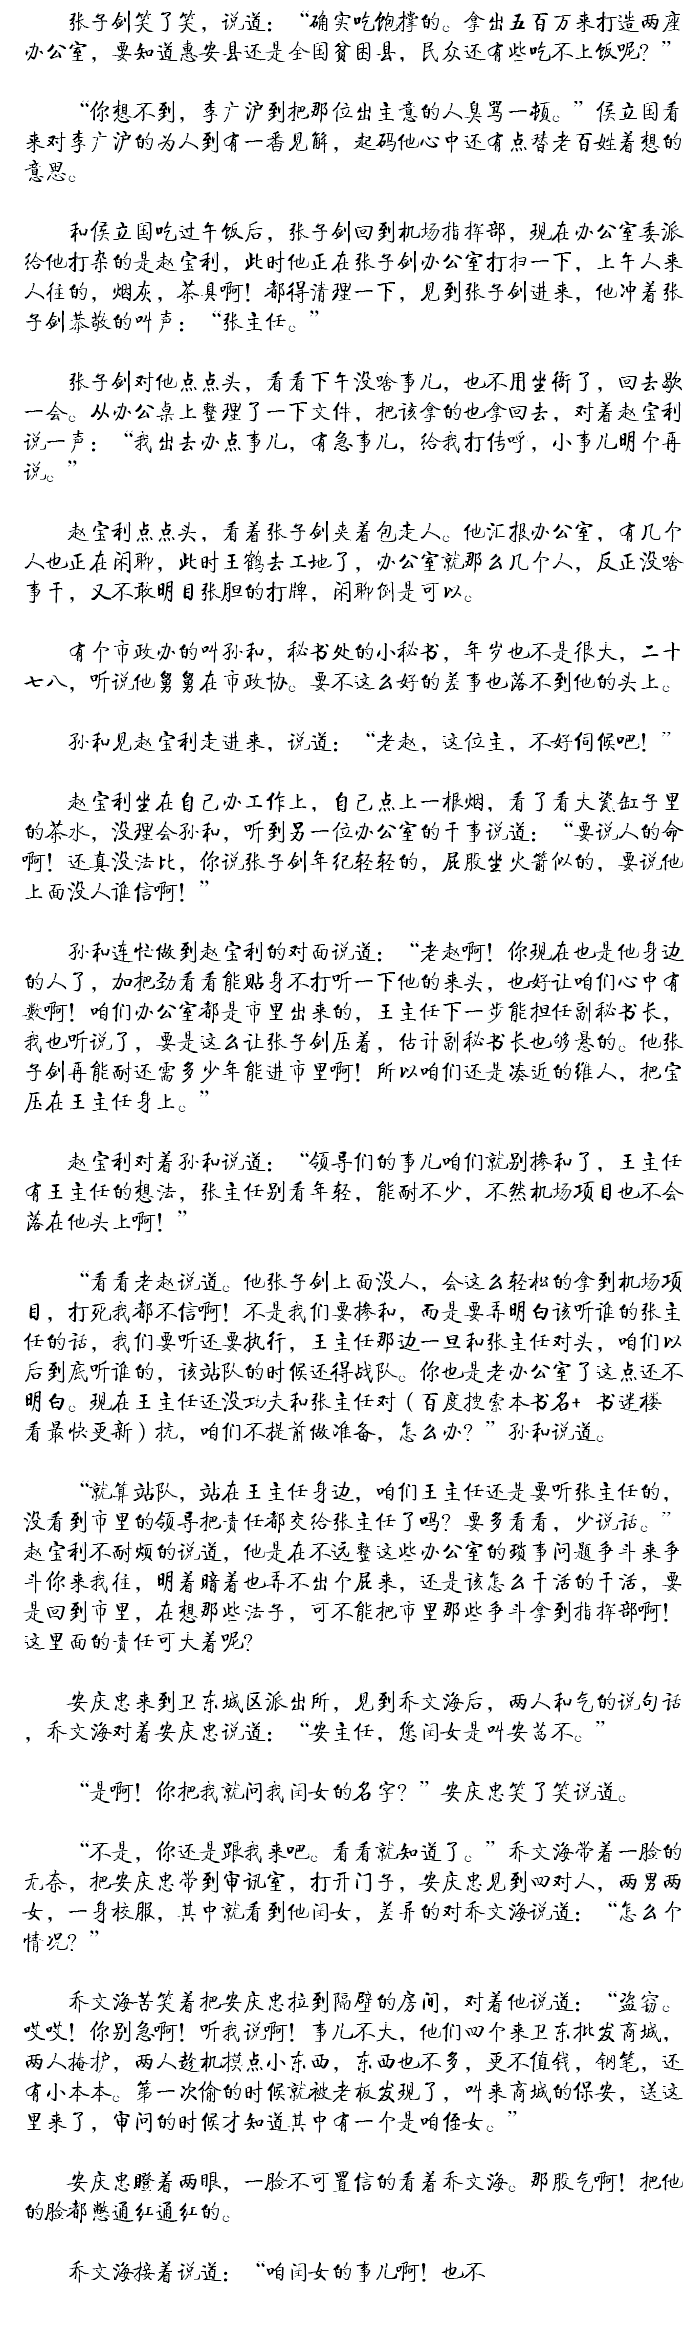 张子剑笑了笑，说道：“确实吃饱撑的。拿出五百万来打造两座
办公室，要知道惠安县还是全国贫困县，民众还有些吃不上饭呢？”
“你想不到，李广沪到把那位出主意的人臭骂一顿。”侯立国看
来对李广沪的为人到有一番见解，起码他心中还有点替老百姓着想的
意思。
和侯立国吃过午饭后，张子剑回到机场指挥部，现在办公室委派
给他打杂的是赵宝利，此时他正在张子剑办公室打扫一下，上午人来
人往的，烟灰，茶具啊！都得清理一下，见到张子剑进来，他冲着张
子剑恭敬的叫声：“张主任。”
张子剑对他点点头，看看下午没啥事儿，也不用坐衙了，回去歇
一会。从办公桌上整理了一下文件，把该拿的也拿回去，对着赵宝利
说一声：“我出去办点事儿，有急事儿，给我打传呼，小事儿明个再
说。”
赵宝利点点头，看着张子剑夹着包走人。他汇报办公室，有几个
人也正在闲聊，此时王鹤去工地了，办公室就那么几个人，反正没啥
事干，又不敢明目张胆的打牌，闲聊倒是可以。
有个市政办的叫孙和，秘书处的小秘书，年岁也不是很大，二十
七八，听说他舅舅在市政协。要不这么好的差事也落不到他的头上。
孙和见赵宝利走进来，说道：“老赵，这位主，不好伺候吧！”
赵宝利坐在自己办工作上，自己点上一根烟，看了看大瓷缸子里
的茶水，没理会孙和，听到另一位办公室的干事说道：“要说人的命
啊！还真没法比，你说张子剑年纪轻轻的，屁股坐火箭似的，要说他
上面没人谁信啊！”
孙和连忙做到赵宝利的对面说道：“老赵啊！你现在也是他身边
的人了，加把劲看看能贴身不打听一下他的来头，也好让咱们心中有
数啊！咱们办公室都是市里出来的，王主任下一步能担任副秘书长，
我也听说了，要是这么让张子剑压着，估计副秘书长也够悬的。他张
子剑再能耐还需多少年能进市里啊！所以咱们还是凑近的维人，把宝
压在王主任身上。”
赵宝利对着孙和说道：“领导们的事儿咱们就别掺和了，王主任
有王主任的想法，张主任别看年轻，能耐不少，不然机场项目也不会
落在他头上啊！”
“看看老赵说道。他张子剑上面没人，会这么轻松的拿到机场项
目，打死我都不信啊！不是我们要掺和，而是要弄明白该听谁的张主
任的话，我们要听还要执行，王主任那边一旦和张主任对头，咱们以
后到底听谁的，该站队的时候还得战队。你也是老办公室了这点还不
明白。现在王主任还没功夫和张主任对（百度搜索本书名+ 书迷楼
看最快更新）抗，咱们不提前做准备，怎么办？”孙和说道。
“就算站队，站在王主任身边，咱们王主任还是要听张主任的，
没看到市里的领导把责任都交给张主任了吗？要多看看，少说话。”
赵宝利不耐烦的说道，他是在不远整这些办公室的琐事问题争斗来争
斗你来我往，明着暗着也弄不出个屁来，还是该怎么干活的干活，要
是回到市里，在想那些法子，可不能把市里那些争斗拿到指挥部啊！
这里面的责任可大着呢？
安庆忠来到卫东城区派出所，见到乔文海后，两人和气的说句话
，乔文海对着安庆忠说道：“安主任，您闺女是叫安苗不。”
“是啊！你把我就问我闺女的名字？”安庆忠笑了笑说道。
“不是，你还是跟我来吧。看看就知道了。”乔文海带着一脸的
无奈，把安庆忠带到审讯室，打开门子，安庆忠见到四对人，两男两
女，一身校服，其中就看到他闺女，差异的对乔文海说道：“怎么个
情况？”
乔文海苦笑着把安庆忠拉到隔壁的房间，对着他说道：“盗窃。
哎哎！你别急啊！听我说啊！事儿不大，他们四个来卫东批发商城，
两人掩护，两人趁机摸点小东西，东西也不多，更不值钱，钢笔，还
有小本本。第一次偷的时候就被老板发现了，叫来商城的保安，送这
里来了，审问的时候才知道其中有一个是咱侄女。”
安庆忠瞪着两眼，一脸不可置信的看着乔文海。那股气啊！把他
的脸都憋通红通红的。
乔文海接着说道：“咱闺女的事儿啊！也不